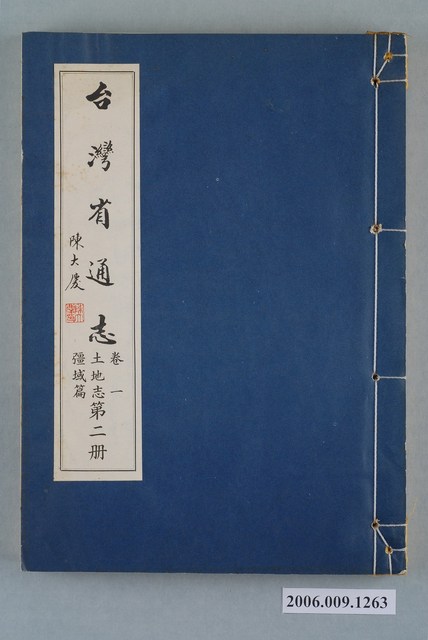 台灣省通志
陳大慶
卷一
土地志
彊域篇
第二册
2006.009.1263